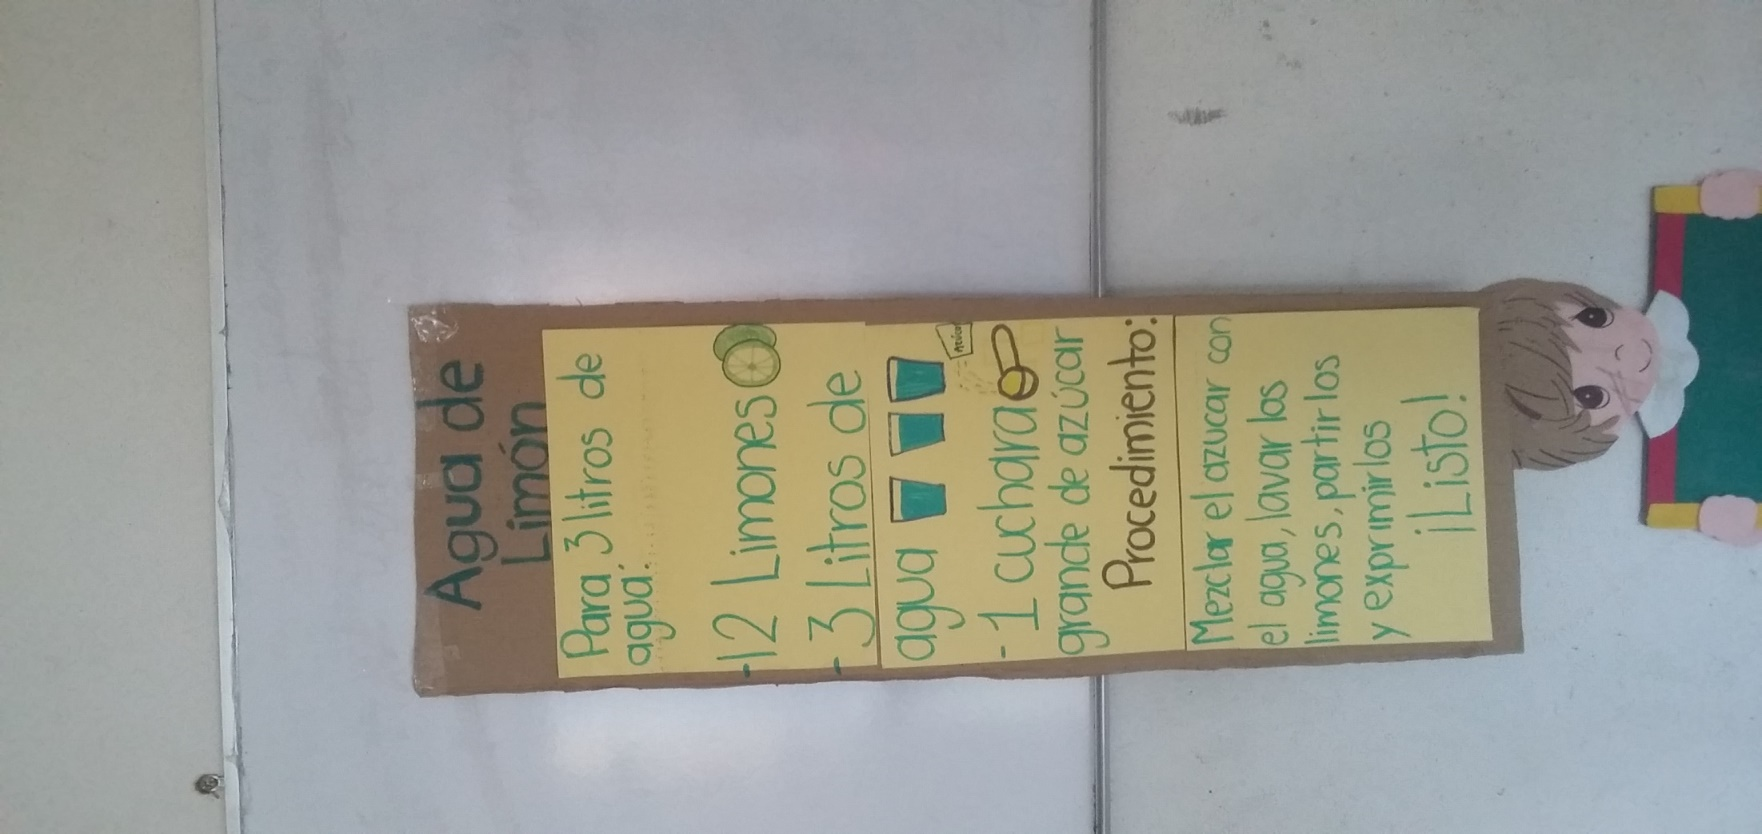 Agua de
Limón
Para 3 litros de
agua:
-12 Limones
- 3 Litros de
agua
Azúcar
- 1 cuchara
grande de azúcar
Procedimiento:
Mezclar el azucar con
el agua, lavar los
limones, partir los
y exprimirlos
¡Listo!